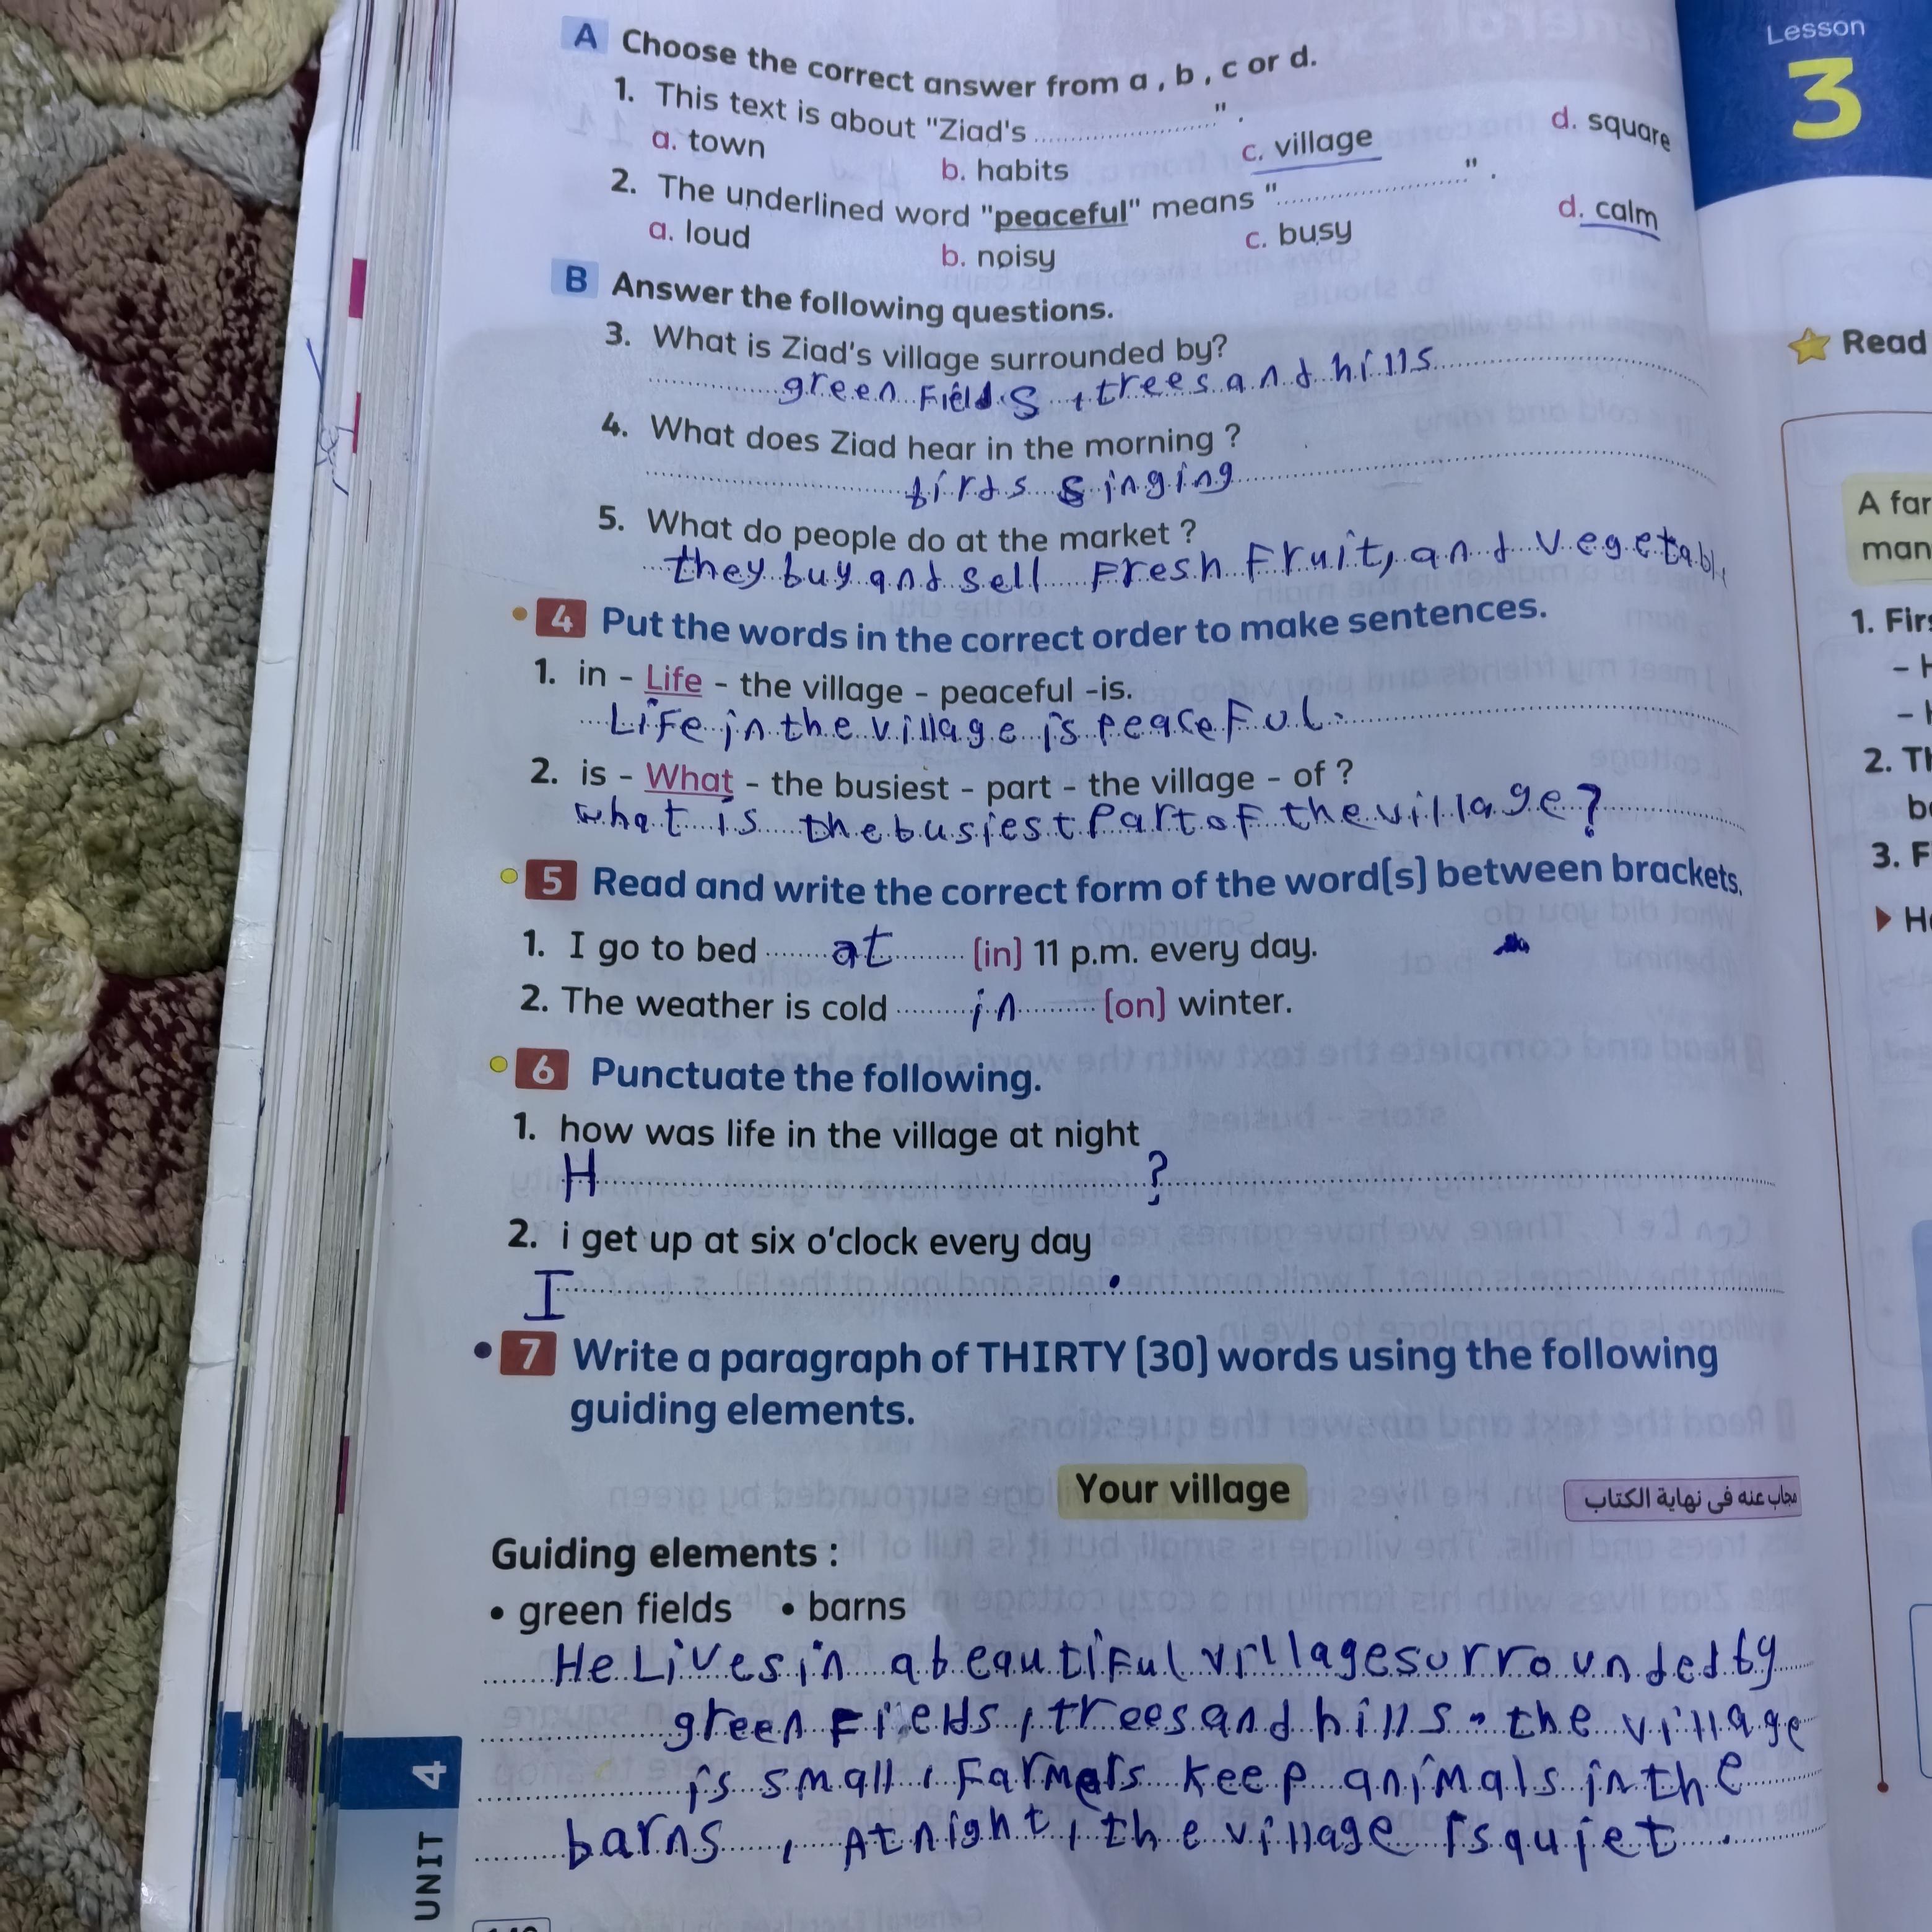 Lesson
3
A Choose the correct answer from a , b , c or d.
1. This text is about "Ziad's ........................".
a. town b. habits c. village d. square
2. The underlined word "peaceful" means "........................".
a. loud b. noisy c. busy d. calm
B Answer the following questions.
3. What is Ziad's village surrounded by?
green Fields , trees and hills
4. What does Ziad hear in the morning ?
birds singing
5. What do people do at the market ?
they buy and sell Fresh Fruit, and vegetabl
4 Put the words in the correct order to make sentences.
1. in - Life - the village - peaceful -is.
Life in the village is peaceful.
2. is - What - the busiest - part - the village - of ?
what is the busiest part of the village?
5 Read and write the correct form of the word(s) between brackets.
1. I go to bed at (in) 11 p.m. every day.
2. The weather is cold in (on) winter.
6 Punctuate the following.
1. how was life in the village at night
H ?
2. i get up at six o'clock every day
I .
7 Write a paragraph of THIRTY (30) words using the following
guiding elements.
Your village
مجاب عنه فى نهاية الكتاب
Guiding elements :
• green fields • barns
He Lives in a beautiful village surrounded by
green Fields , trees and hills . the village
is small , Farmers keep animals in the
barns , At night , the village is quiet .
UNIT 4
Read
A far
man
1. Firs
– H
– H
2. Th
be
3. F
H